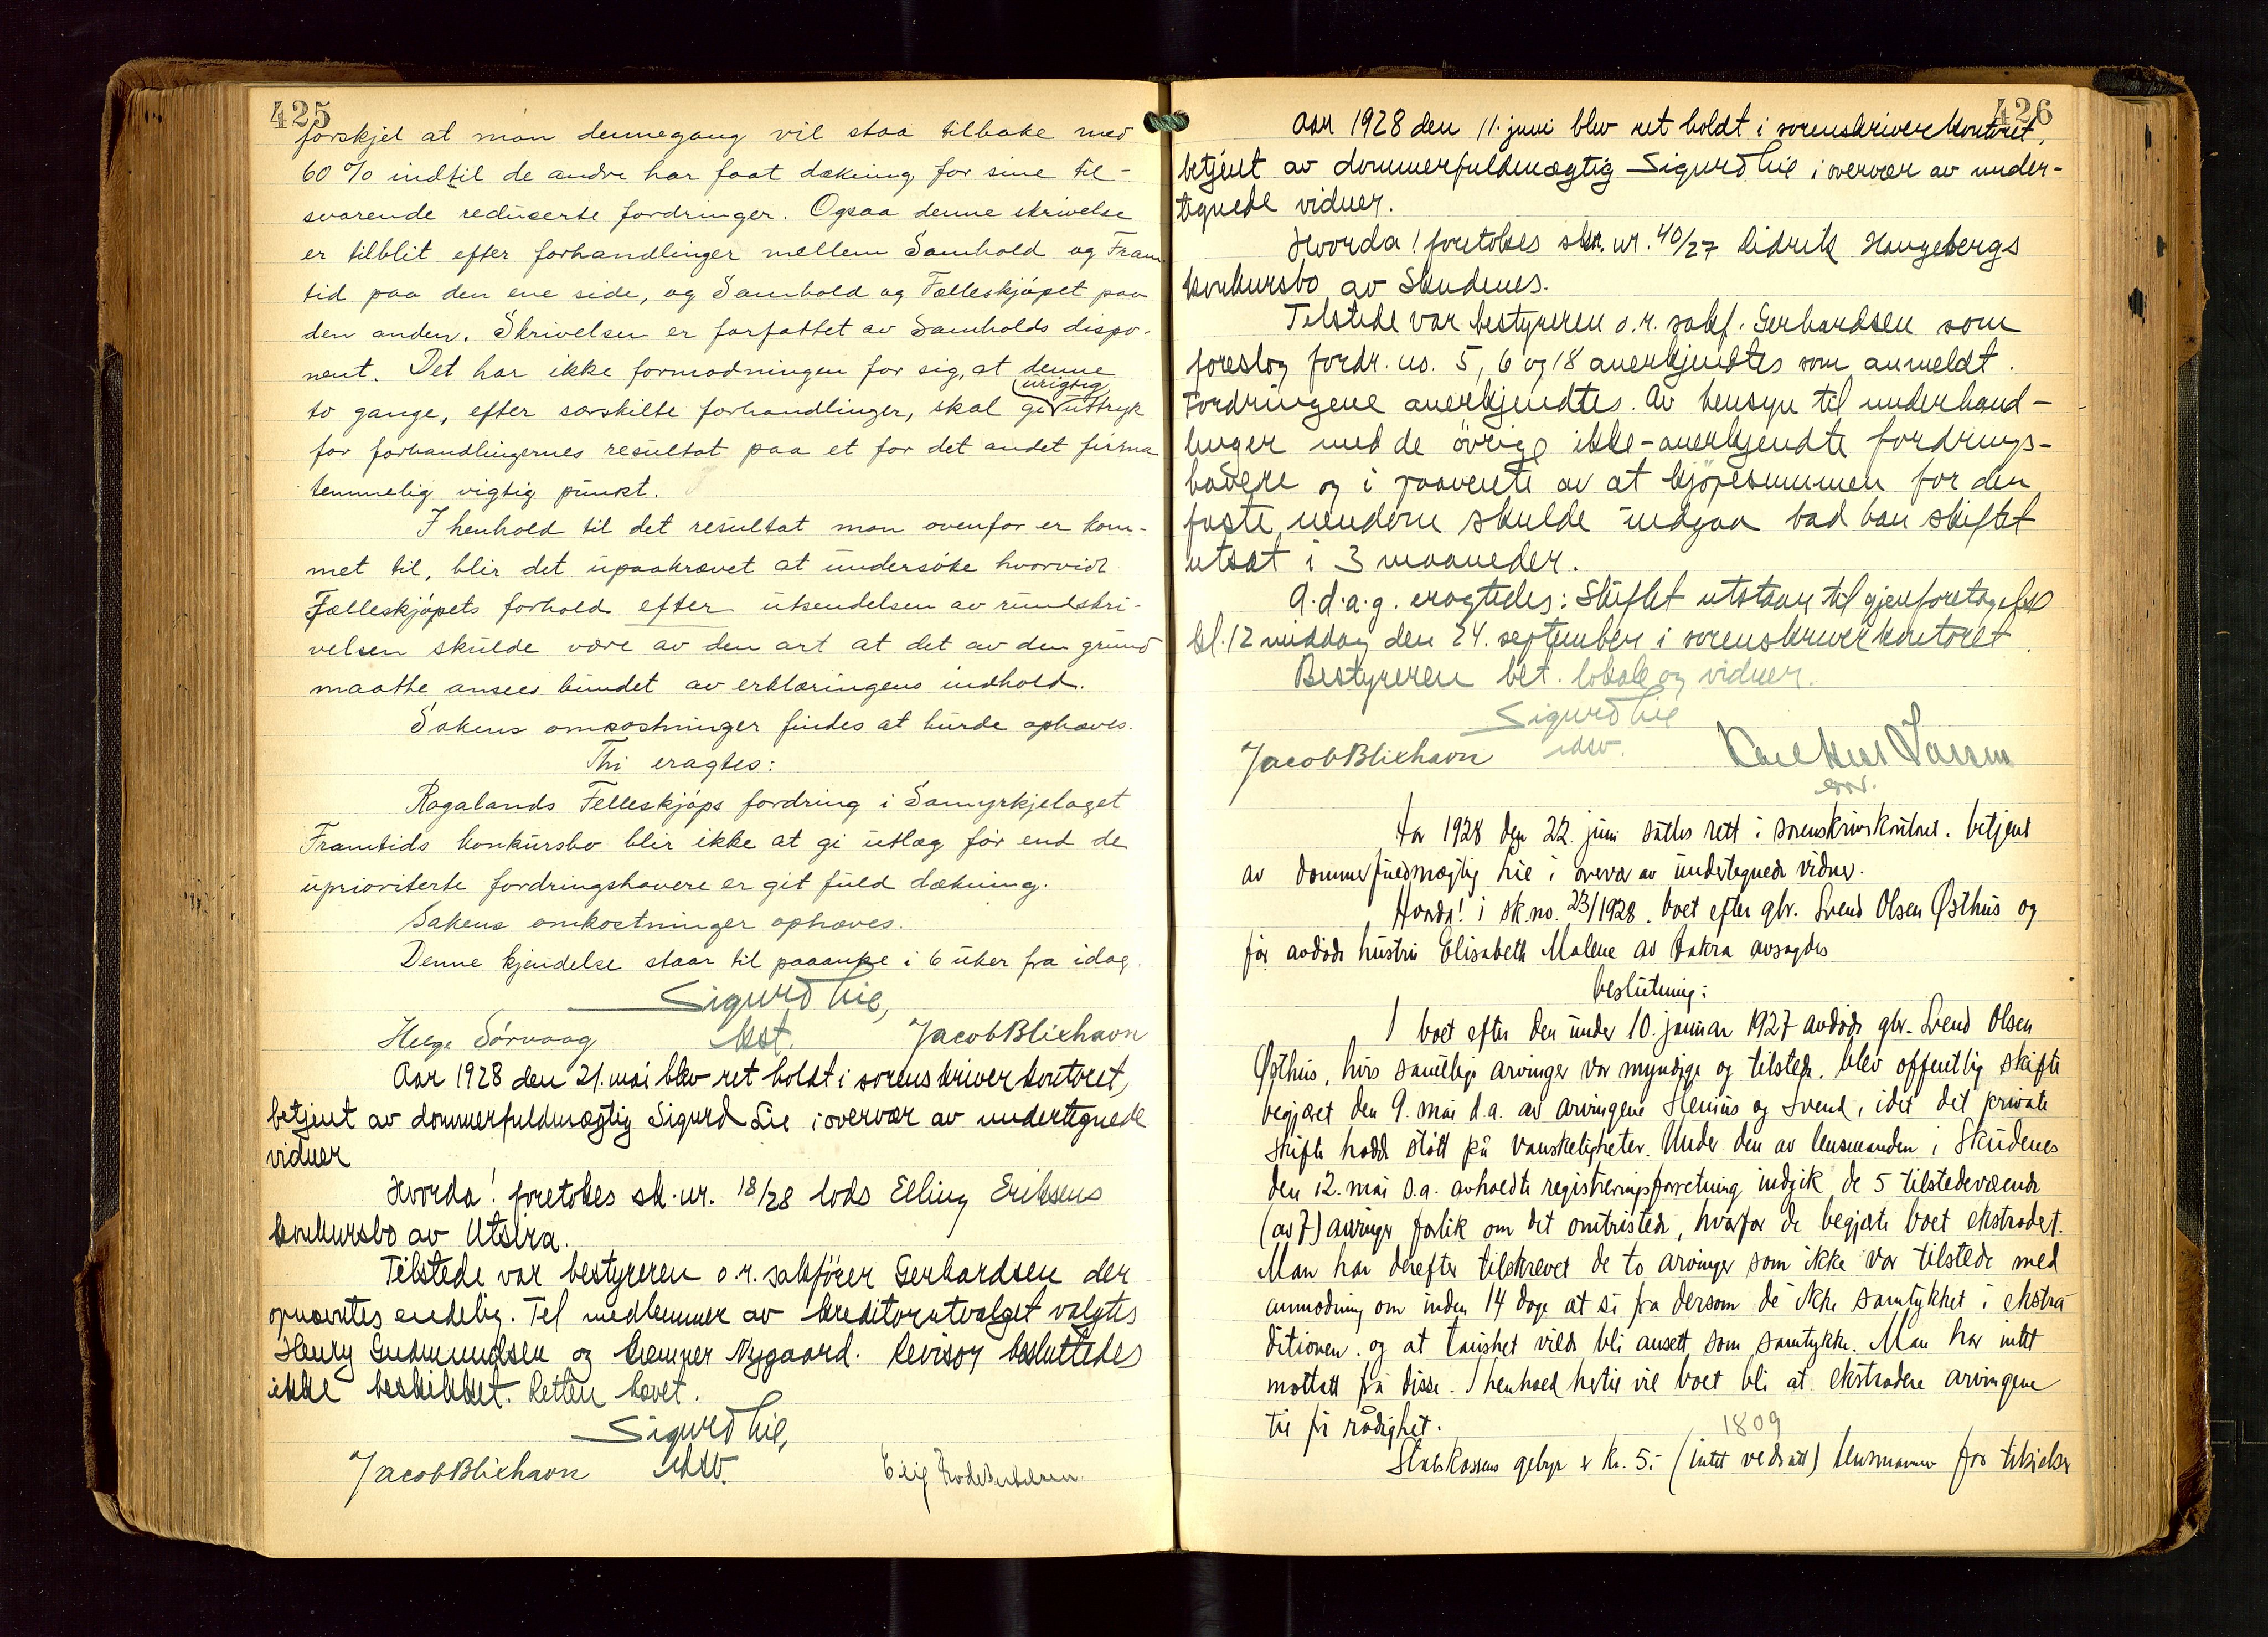 425
forskjel at man dennegang vil staa tilbake med
60 % indtil de andre har faat dækning for sine til-
svarende reduserte fordringer. Ogsaa denne skrivelse
er tilblit efter forhandlinger mellem Samhold og Fram
tid paa den ene side, og Samhold og Fælleskjøpet paa
den anden. Skrivelsen er forfattet av Samholds dispo-
nent. Det har ikke formodningen for sig, at denne
urigtig
to gange, efter særskilte forhandlinger, skal gi uttryk
for forhandlingernes resultat paa et for det andet firma
temmelig vigtig punkt.
I henhold til det resultat man ovenfor er kom-
met til, blir det upaakrævet at undersøke hvorvidt
Fælleskjøpets forhold efter utsendelsen av rundskri-
velsen skulde være av den art at det av den grund
maatte ansees bundet av erklæringens indhold.
Sakens omkostninger findes at burde ophæves.
Thi eragtes:
Rogalands Felleskjøps fordring i Samyrkjelaget
Framtids konkursbo blir ikke at gi utlæg før end de
uprioriterte fordringshavere er git fuld dækning.
Sakens omkostninger ophæves.
Denne kjendelse staar til paaanke i 6 uker fra idag.
Sigurd Lie,
Helge Sørvaag kst. Jacob Blixhavn
Aar 1928 den 21. mai blev ret holdt i sorenskriverkontoret,
betjent av dommerfuldmægtig Sigurd Lie i overvær av undertegnede
vidner
Hvorda! foretokes sk. nr. 18/28 lods Elling Eriksens
konkursbo av Utsira.
Tilstede var bestyreren o.r. sakfører Gerhardsen der
opnævntes endelig. Til medlemmer av kreditorutvalget valgtes
Henry Gudmundsen og Kremner Nygaard. Revisor besluttedes
ikke beskikket. Retten hævet.
Sigurd Lie,
Jacob Blixhavn edsv.
426
Aar 1928 den 11. juni blev ret holdt i sorenskriverkontoret,
betjent av dommerfuldmægtig Sigurd Lie i overvær av under-
tegnede vidner.
Hvorda! foretokes sk. nr. 40/27 Didrik Haugebergs
konkursbo av Skudenes.
Tilstede var bestyreren o.r. sakf. Gerhardsen som
foreslog fordr. no. 5, 6 og 18 anerkjendtes som anmeldt.
Fordringene anerkjendtes. Av hensyn til underhand-
linger med de øvrige ikke-anerkjendte fordrings-
havere og i paavente av at kjøpesummen for den
faste eiendom skulde indgaa bad han skiftet
utsat i 3 maaneder.
A.d.a.g. eragtedes: Skiftet utstaar til gjenforetagelse
kl. 12 middag den 24. september i sorenskriverkontoret.
Bestyreren bet. lokale og vidner.
Sigurd Lie
Jacob Blixhavn edsv. Larsen
edsv.
Aar 1928 den 22. juni sattes rett i sorenskriverkontoret. betjent
av dommerfuldmægtig Lie i overvær av undertegnede vidner.
Hvorda! i sk.no. 23/1928. boet efter gbr. Svend Olsen Østhus og
før avdøde hustru Elisabeth Malene av Aakra avsagdes
beslutning:
I boet efter den under 10. januar 1927 avdøde gbr. Svend Olsen
Østhus, hvis samtlige arvinger var myndige og tilstede. blev offentlig skifte
begjært den 9. mai d.a. av arvingene Stenius og Svend, idet det private
skifte hadde støtt på vanskeligheter. Under den av lensmanden i Skudenes
den 12. mai s.a. avholdte registreringsforretning indgik de 5 tilstedeværende
(av 7) arvinger forlik om det omtvistede, hvorfor de begjærte boet ekstradert.
Man har derefter tilskrevet de to arvinger som ikke var tilstede med
anmodning om inden 14 dage at si fra dersom de ikke samtykket i ekstra-
ditionen. og at taushet vilde bli ansett som samtykke. Man har intet
mottatt fra disse. I henhold hertil vil boet bli at ekstradere arvingene
til fri rådighet.
1809
Statskassens gebyr er kr. 5.- (intet vedsatt) lensmannen for tilsielse